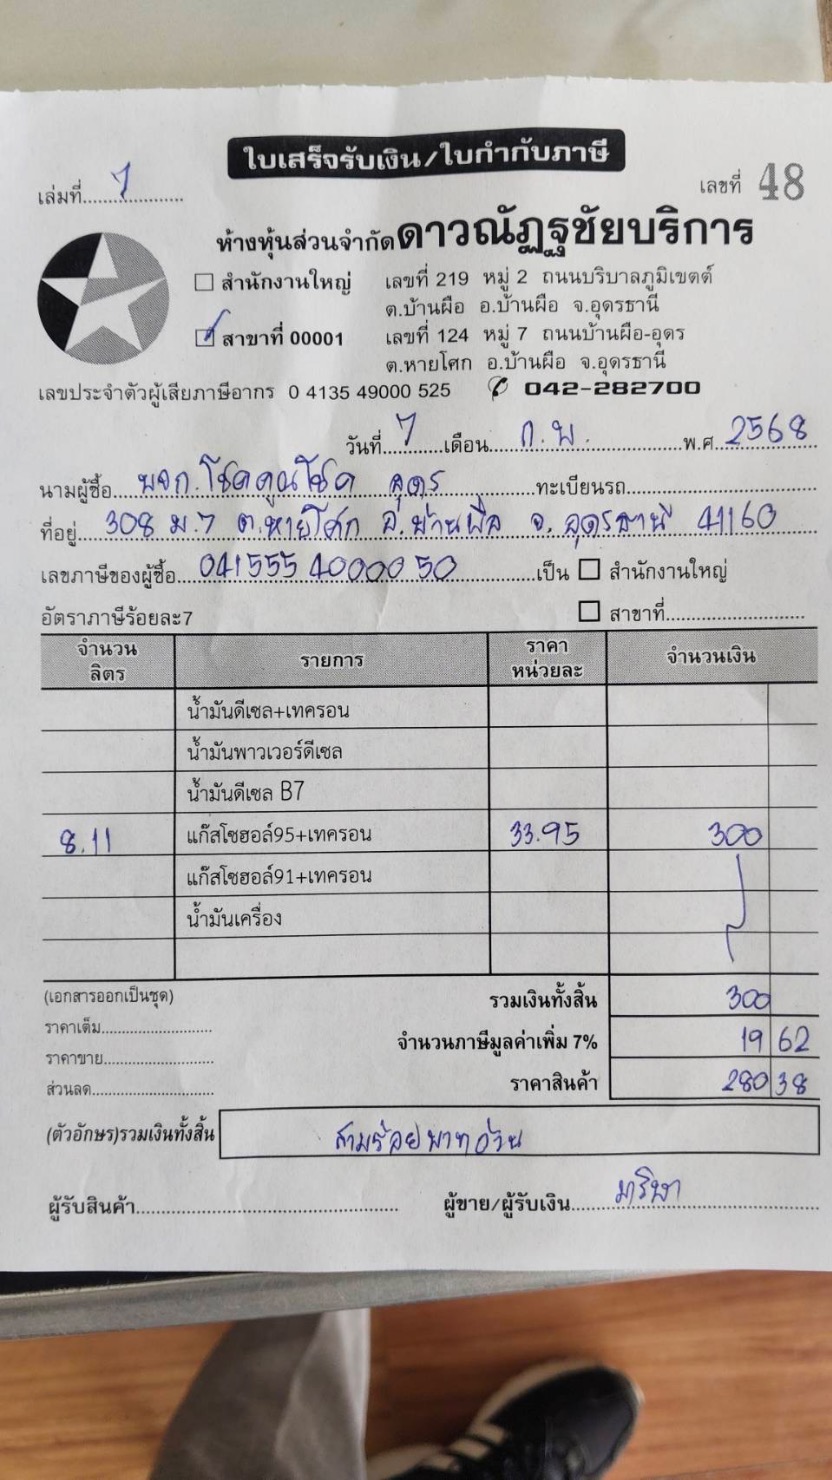 ใบเสร็จรับเงิน/ใบกำกับภาษี
เล่มที่ 7 เลขที่ 48
ห้างหุ้นส่วนจำกัดดาวณัฏฐชัยบริการ
สำนักงานใหญ่ เลขที่ 219 หมู่ 2 ถนนบริบาลภูมิเขตต์
ต.บ้านผือ อ.บ้านผือ จ.อุดรธานี
สาขาที่ 00001 เลขที่ 124 หมู่ 7 ถนนบ้านผือ-อุดร
ต.หายโศก อ.บ้านผือ จ.อุดรธานี
เลขประจำตัวผู้เสียภาษีอากร 0 4135 49000 525 042-282700
วันที่ 7 เดือน ก.พ. พ.ศ. 2568
นามผู้ซื้อ หจก.โชคคูณโชค อุดร ทะเบียนรถ
ที่อยู่ 308 ม.7 ต.หายโศก อ.บ้านผือ จ.อุดรธานี 41160
เลขภาษีของผู้ซื้อ 0415554000050 เป็น สำนักงานใหญ่
อัตราภาษีร้อยละ7 สาขาที่
จำนวนลิตร รายการ ราคาหน่วยละ จำนวนเงิน
น้ำมันดีเซล+เทครอน
น้ำมันพาวเวอร์ดีเซล
น้ำมันดีเซล B7
8.11 แก๊สโซฮอล์95+เทครอน 33.95 300
แก๊สโซฮอล์91+เทครอน
น้ำมันเครื่อง
(เอกสารออกเป็นชุด) รวมเงินทั้งสิ้น 300
ราคาเต็ม
จำนวนภาษีมูลค่าเพิ่ม 7% 19 62
ราคาขาย
ราคาสินค้า 280 38
ส่วนลด
(ตัวอักษร)รวมเงินทั้งสิ้น สามร้อยบาทถ้วน
ผู้รับสินค้า ผู้ขาย/ผู้รับเงิน